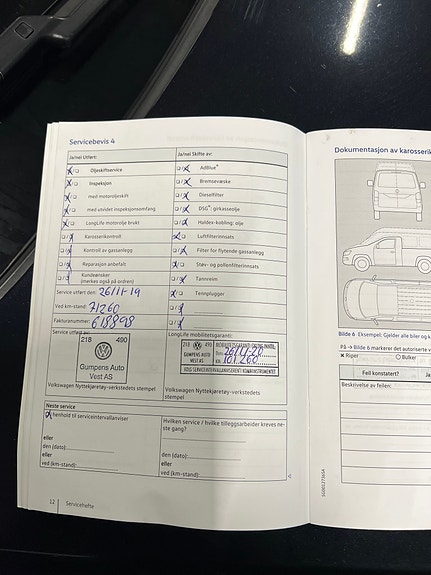 Servicebevis 4
Ja/nei Utført:
Ja/nei Skifte av:
Oljeskiftservice
AdBlue®
Inspeksjon
Bremsevæske
med motoroljeskift
Dieselfilter
med utvidet inspeksjonsomfang
DSG®: girkasseolje
LongLife motorolje brukt
Haldex-kobling: olje
Karosserikontroll
Luftfilterinnsats
Kontroll av gassanlegg
Filter for flytende gassanlegg
Reparasjon anbefalt
Støv- og pollenfilterinnsats
Kundeønsker
(merkes også på ordren)
Tannreim
Service utført den: 26/11-19
Tennplugger
Ved km-stand: 71260
Fakturanummer: 618898
Service utført av:
LongLife mobilitetsgaranti:
218 490
Gumpens Auto
Vest AS
218 490
GUMPENS AUTO
VEST AS
Volkswagen Nyttekjøretøy-verkstedets
stempel
Volkswagen Nyttekjøretøy-verkstedets stempel
Neste service
henhold til serviceintervallanviser
eller
den (dato):
eller
ved (km-stand):
Hvilken service / hvilke tilleggsarbeider kreves ne-
ste gang?
den (dato):
eller
ved (km-stand):
12 Servicehefte
Dokumentasjon av karosserik
Bilde 6 Eksempel: Gjelder alle biler og k
På → Bilde 6 markerer det autoriserte v
Riper
Bulker
Feil konstatert?
Ja
Beskrivelse av feilen: